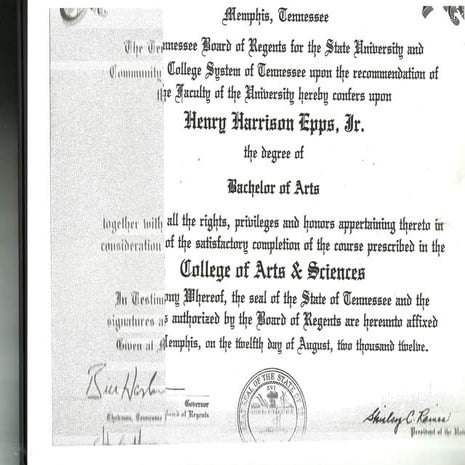 Memphis, Tennessee
The Tennessee Board of Regents for the State University and
Community College System of Tennessee upon the recommendation of
the Faculty of the University hereby confers upon
Henry Harrison Epps, Jr.
the degree of
Bachelor of Arts
together with all the rights, privileges and honors appertaining thereto in
consideration of the satisfactory completion of the course prescribed in the
College of Arts & Sciences
In Testimony Whereof, the seal of the State of Tennessee and the
signatures as authorized by the Board of Regents are hereunto affixed
Given at Memphis, on the twelfth day of August, two thousand twelve.
Bill Haslam
Governor
Chairman, Tennessee Board of Regents
SEAL OF THE STATE OF
XVI
Shirley C. Raines
President of the